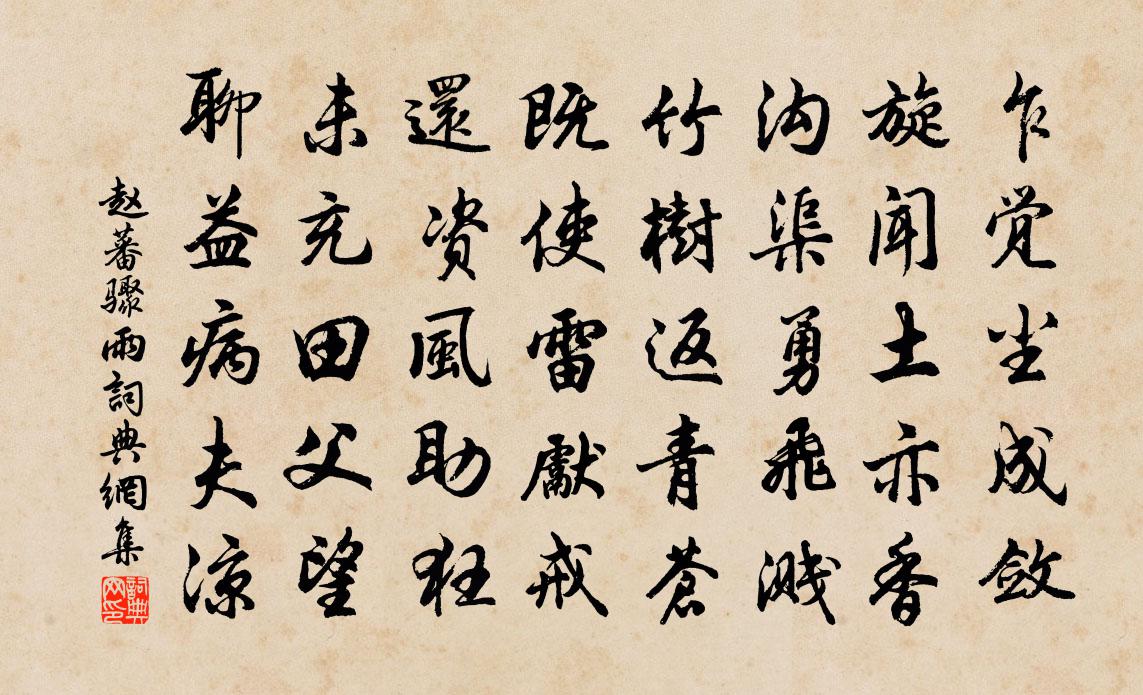 乍觉尘成敛
旋闻土亦香
沟渠勇飛溅
竹樹返青蒼
既使雷獻戒
還资風助狂
未充田父望
聊益病夫凉
赵蕃骤雨詞典網集
詞典网印